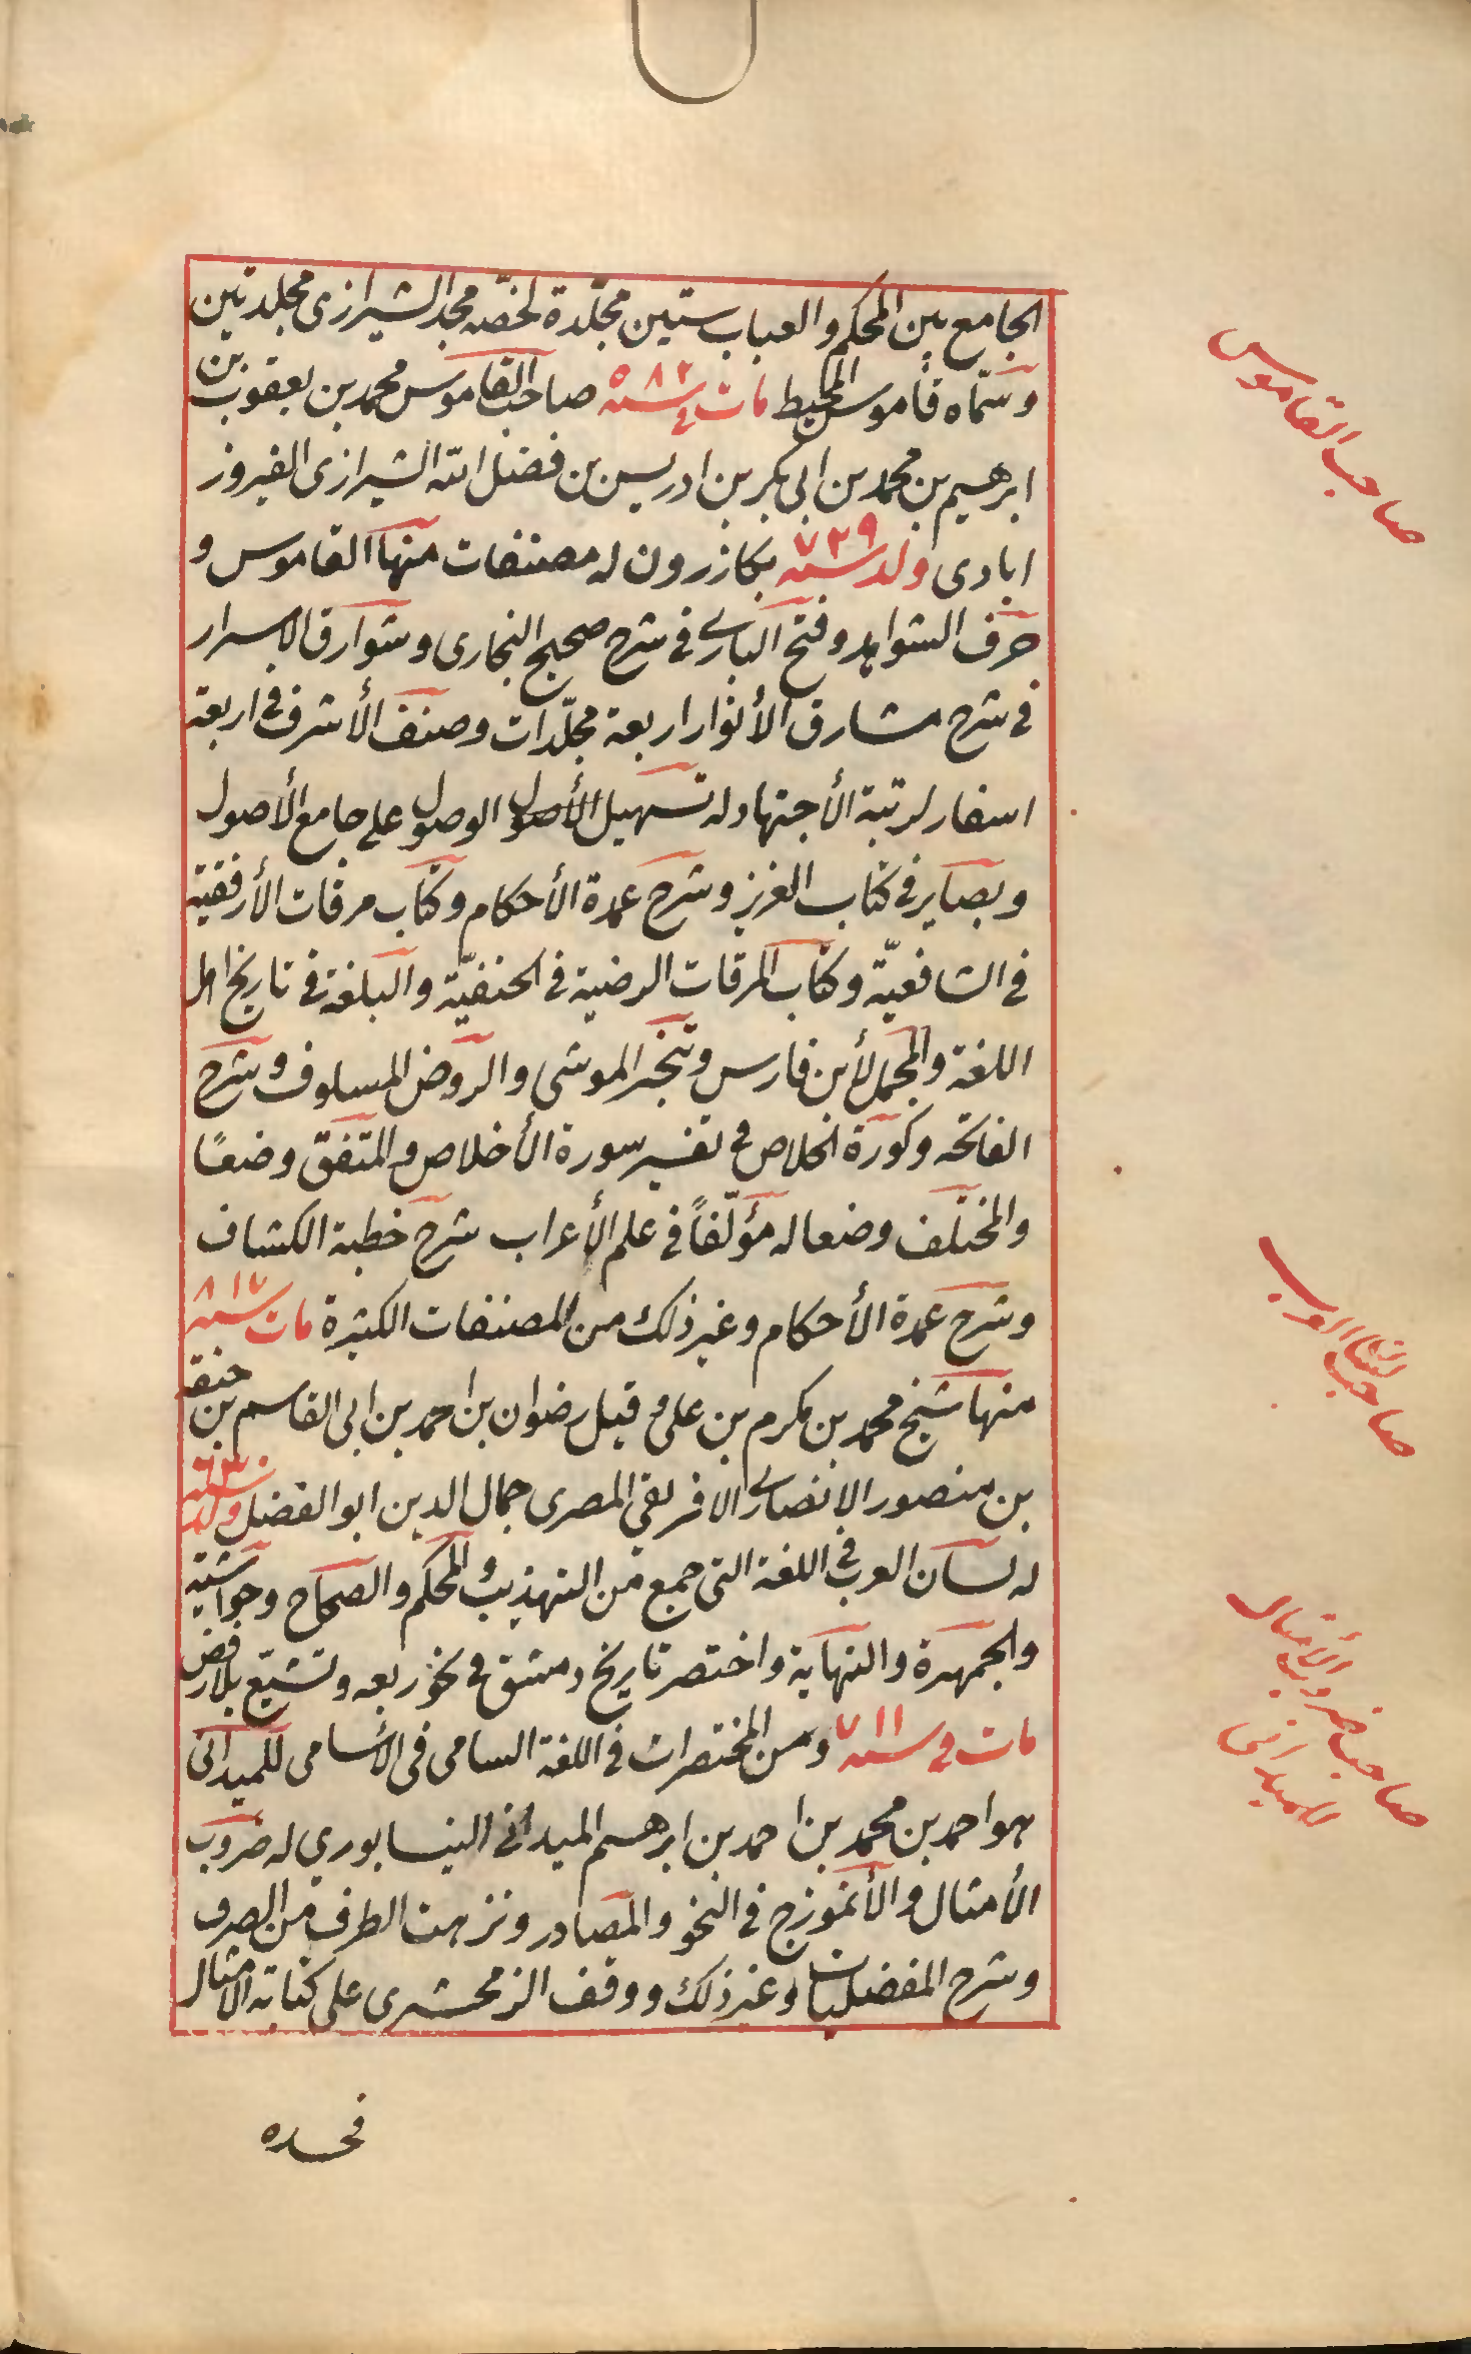 الجامع بين المحكم والعباب ستين مجلّدة لخصّه مجد الشيرازى مجلدتين
وسمّاه قاموس المحيط مات سنه ٥٨٢ صاحب القاموس محمد بن يعقوب بن
ابرهيم بن محمد بن ابى بكر بن ادريس بن فضل الله الشيرازى الفيروز
ابادى ولد سنه ٧٢٩ بكازرون له مصنفات منها القاموس و
حرف الشواهد وفتح البارى فى شرح صحيح البخارى وشوارق الاسرار
فى شرح مشارق الأنوار اربعة مجلّدات وصنف الأشرف فى اربعة
اسفار لرتبة الأجتهاد له تسهيل الأصول الوصول على جامع الأصول
وبصاير فى كتاب العزيز وشرح عمدة الأحكام وكتاب مرقات الأرفقية
فى الشافعيّة وكتاب المرقات الرضية فى الحنفيّة والبلغة فى تاريخ اهل
اللغة والمجمل لأبن فارس وتنجبر الموشى والروض المسلوف وشرح
الفاتحه وكورة الخلاص فى تفسير سورة الأخلاص والمتفق وضعًا
والمختلف وضعا له مؤلّفاً فى علم الأعراب شرح خطبة الكشاف
وشرح عمدة الأحكام وغير ذلك من المصنفات الكثيرة مات سنه ٨١٧
منها شيخ محمد بن مكرم بن على و قيل رضوان بن احمد بن ابى القاسم بن حنقه
بن منصور الانصارى الافريقى المصرى جمال الدين ابو الفضل ولد سنه ٦٣٠
له لسان العرب فى اللغة التى جمع من التهذيب والمحكم والصحاح وحواشيه
والجمهرة والنهاية واختصر تاريخ دمشق فى نحو ربعه وتشيّع بلا رفض
مات فى سنه ٧١١ ومن المختصرات فى اللغة السامى فى الأسامى للميدانى
هو احمد بن محمد بن احمد بن ابرهيم الميدانى النيسابورى له ضروب
الأمثال والأنموزج فى النحو والمصادر ونزهت الطرف من الصرف
وشرح المفضليات وغير ذلك ووقف الزمخشرى على كتابه الامثال
فحسده
صاحب القاموس
صاحب لسان العرب
صاحب ضروب الأمثال
للميدانى